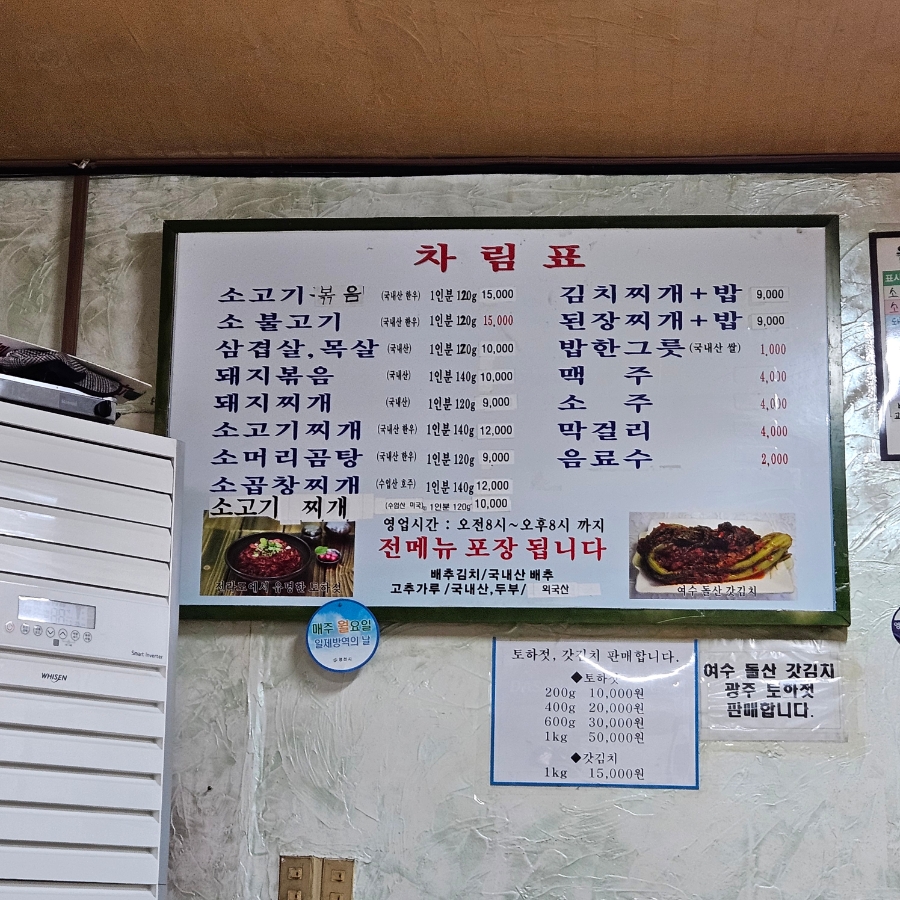 차림표
소고기볶음 (국내산 한우) 1인분 120g 15,000
소 불고기 (국내산 한우) 1인분 120g 15,000
삼겹살, 목살 (국내산) 1인분 120g 10,000
돼지볶음 (국내산) 1인분 140g 10,000
돼지찌개 (국내산) 1인분 120g 9,000
소고기찌개 (국내산 한우) 1인분 140g 12,000
소머리곰탕 (국내산 한우) 1인분 120g 9,000
소곱창찌개 (수입산 호주) 1인분 140g 12,000
소고기 찌개 (수입산 미국) 1인분 120g 10,000
김치찌개+밥 9,000
된장찌개+밥 9,000
밥한그릇 (국내산 쌀) 1,000
맥 주 4,000
소 주 4,000
막걸리 4,000
음료수 2,000
영업시간 : 오전8시~오후8시 까지
전메뉴 포장 됩니다
배추김치/국내산 배추
고추가루/국내산, 두부/ 외국산
전라도에서 유명한 토하젓
여수 돌산 갓김치
매주 월요일
일제방역의 날
토하젓, 갓김치 판매합니다.
◆토하젓
200g 10,000원
400g 20,000원
600g 30,000원
1kg 50,000원
◆갓김치
1kg 15,000원
여수 돌산 갓김치
광주 토하젓
판매합니다.
Smart Inverter
WHISEN